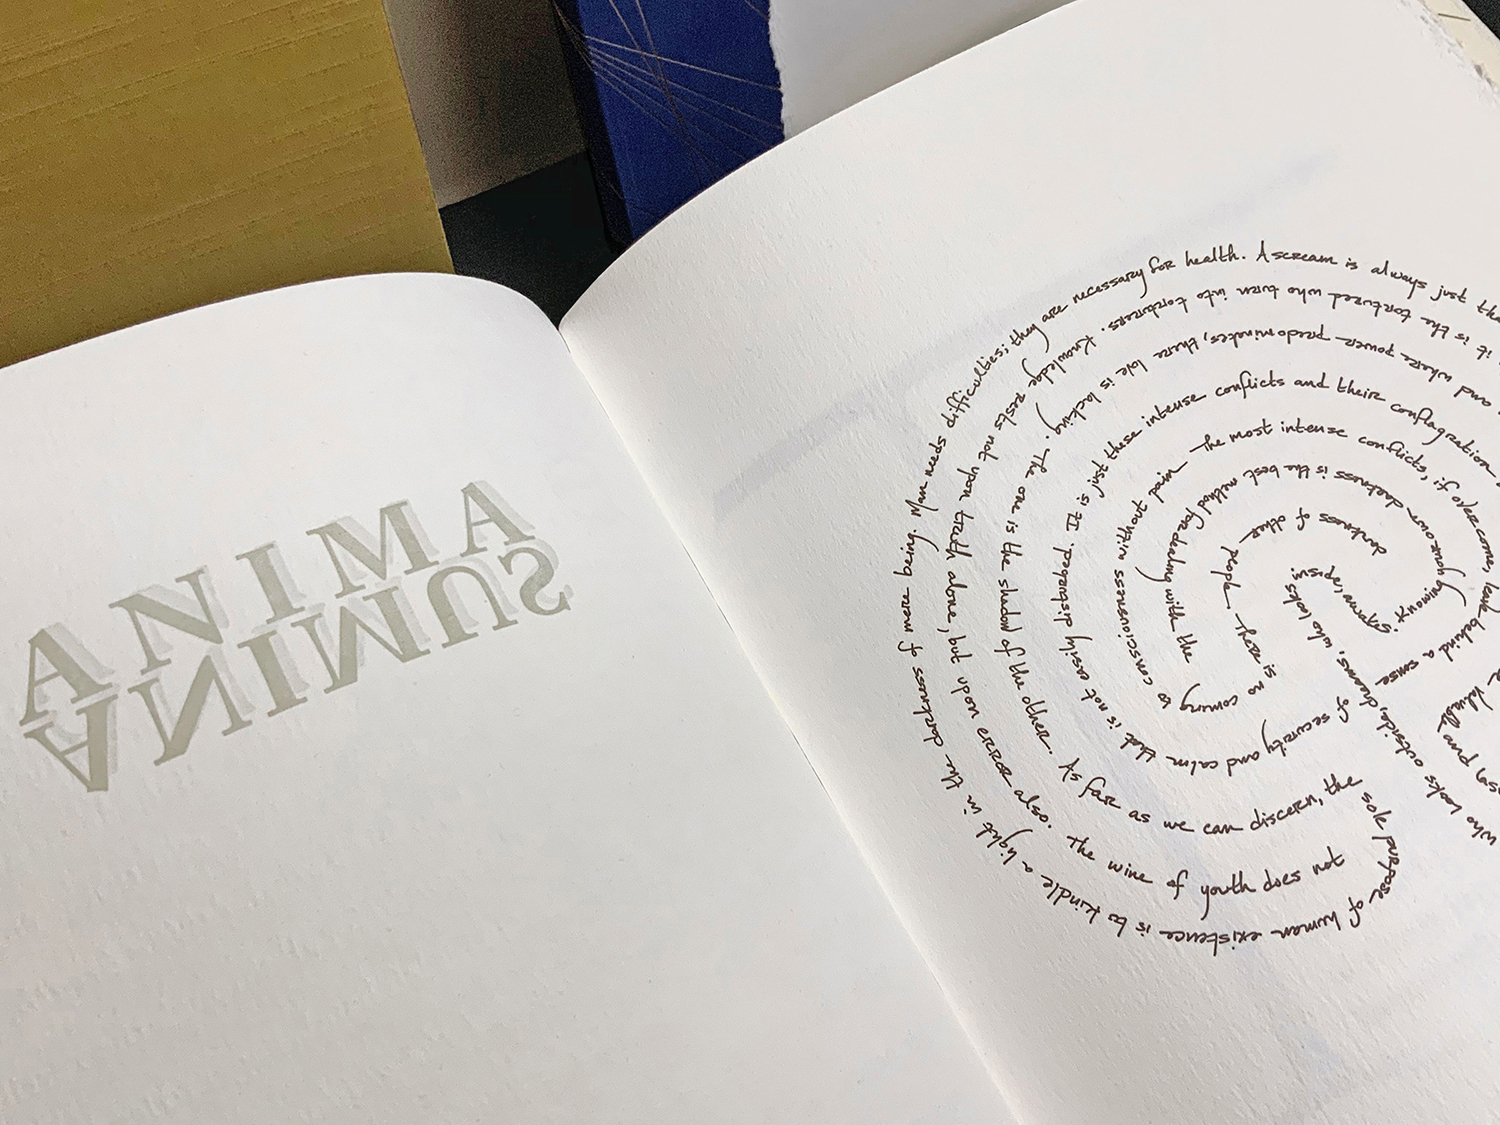 ANIMA
ANIMUS
who looks outside, dreams, who looks inside, awakes.
Knowing your own darkness is the best method for dealing with the
darkness of other people. There is no coming
to consciousness without pain. The most intense conflicts, if overcome, leave behind a sense
of security and calm that is not easily disturbed. It is just these intense conflicts and their conflagration
valuable
and where power predominates, there love is lacking. The one is the shadow of the other. As far as we can discern, the
sole purpose of human existence is to kindle a light in the darkness of mere being. Man needs difficulties; they are necessary for health. A scream is always just
it is the tortured who turn into torturers. Knowledge rests not upon truth alone, but upon error also. The wine of youth does not